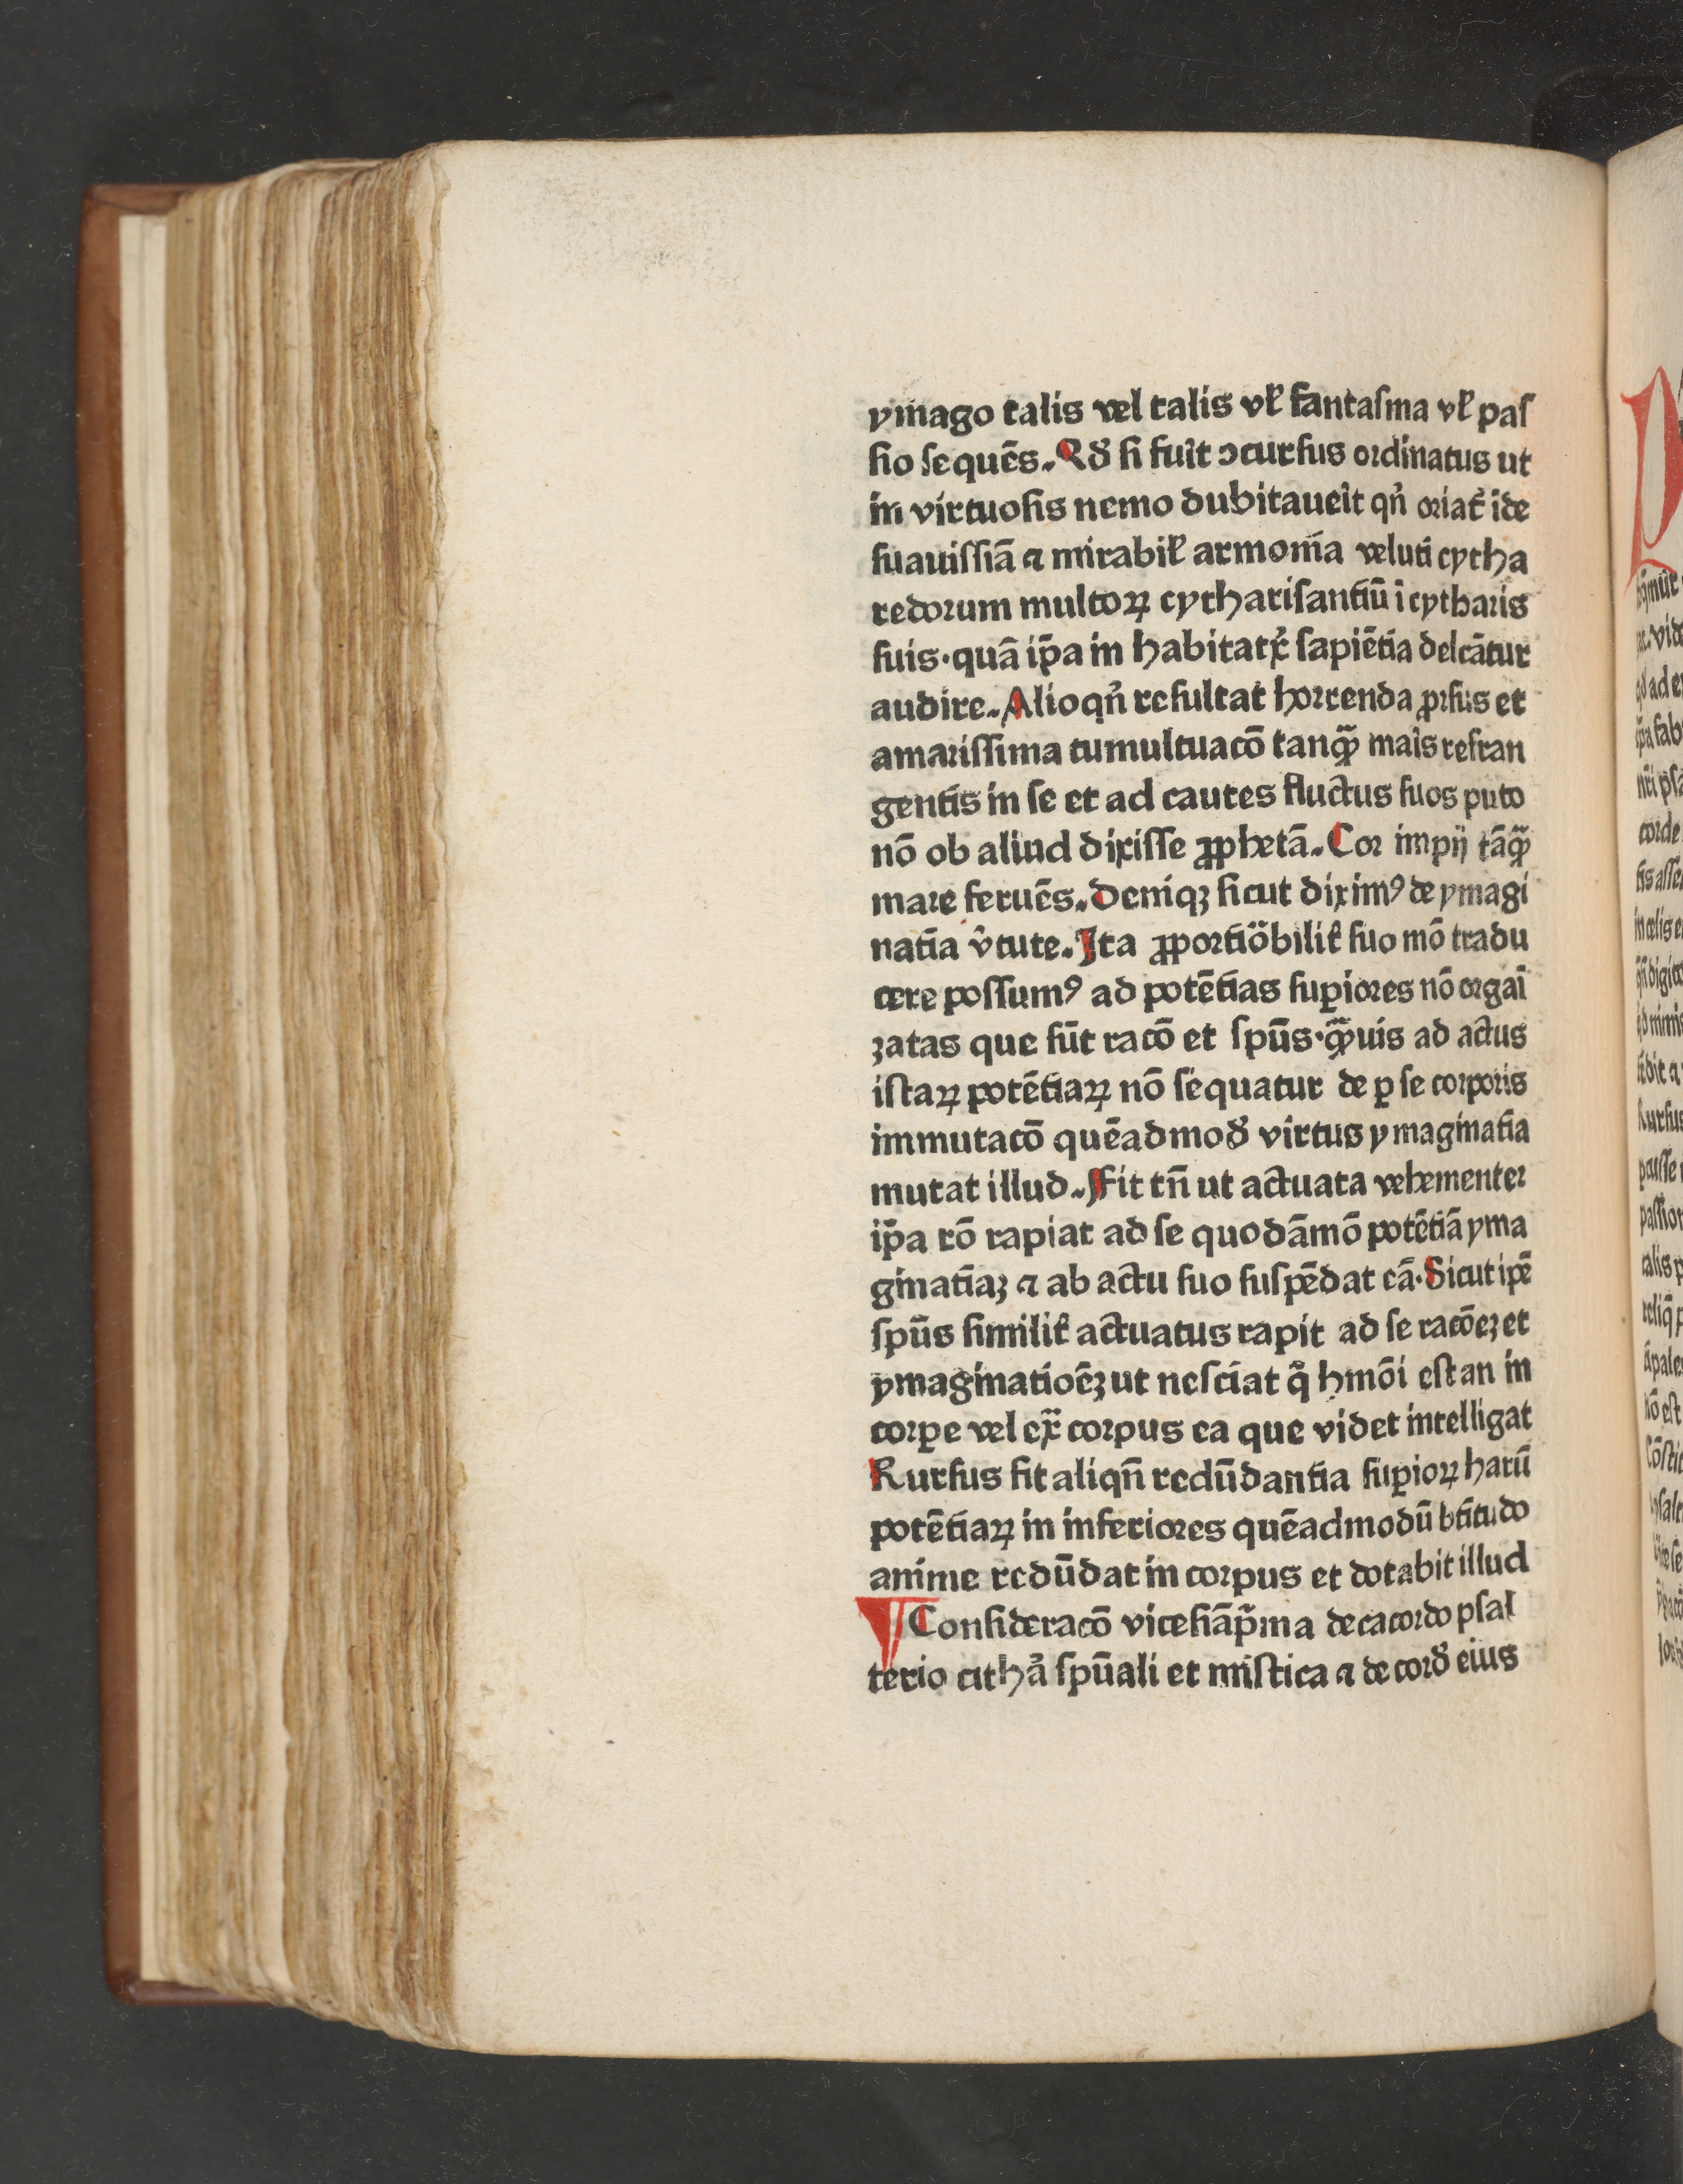 ymago talis vel talis vel̛ fantaſma vel̛ paſ
ſio ſequēs. Qđ ſi fuīt ↄcurſus ordinatus ut
in virtuoſis nemo dubitaueīt qn̄ oriat᷑ īde
ſuauiſſiā ⁊ mirabil̛ armoniā veluti cytha
redorum multoꝝ cythariſantiū ī cytharis
ſuis·quā ip̄a in habitatᷣx ſapiētia delcātur
audire. Alioqn̄ reſultat horrenda ꝓrſus et
amariſſima tumultuacō tanqᷓꝫ maīs refran
gentis in ſe et ad cautes fluctus ſuos puto
nō ob aliud dixiſſe ꝓphetā. Cor impij tāqᷓꝫ
mare feruēs. Deniqꝫ ſicut diximꝰ de ymagi
natīa v̄tute. Ita ꝓportiōbilit᷑ ſuo mō tradu
cere poſſumꝰ ad potētias ſuꝑiores nō orgaī
zatas que ſūt racō et ſpūs·qᷓꝫuis ad actus
iſtaꝝ potētiaꝝ nō ſequatur de ꝑ ſe corporis
immutacō quēadmođ virtus ymaginatīa
mutat illud. Fit tn̄ ut actuata vehementer
ip̄a rō rapiat ad ſe quodāmō potētiā yma
ginatīaꝫ ⁊ ab actu ſuo ſuſpēdat eā. Sicut ip̄e
ſpūs ſimilit᷑ actuatus rapit ad ſe racōeꝫ et
ymaginatioēꝫ ut neſciat qͣ hmōi eſt an in
corꝑe vel exͣ corpus ea que videt intelligat
Rurſus fit aliqn̄ redūdantia ſuꝑioꝝ harū
potētiaꝝ in inferiores quēadmodū btītudo
anime redūdat in corpus et dotabit illud
¶ Conſideracō viceſiāpͥma decacordo pſal
terio cithaͣ ſpūali et miſtica ⁊ de corđ eius